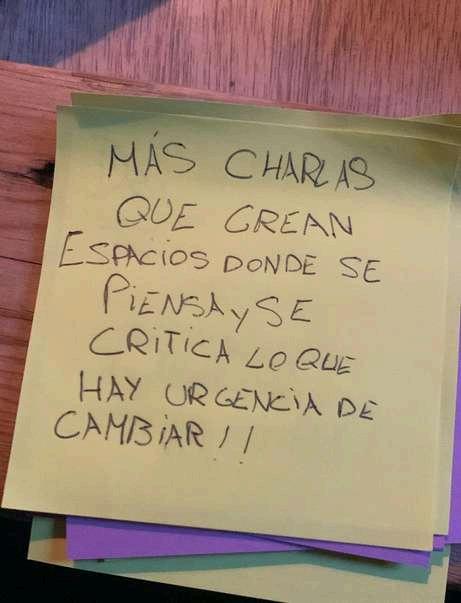 MÁS CHARLAS
QUE CREAN
ESPACIOS DONDE SE
PIENSA Y SE
CRITICA LO QUE
HAY URGENCIA DE
CAMBIAR!!